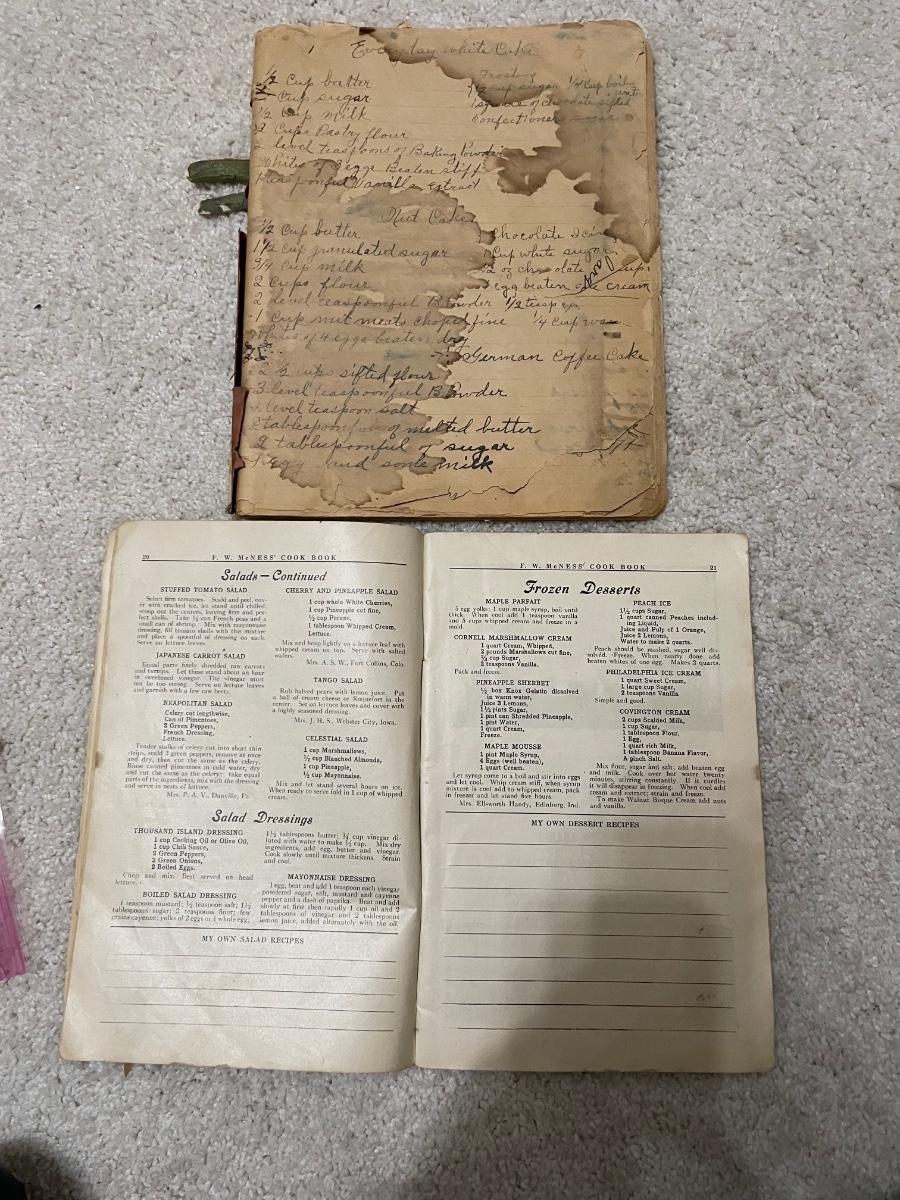 Everyday white Cake
1/2 Cup butter
Cup sugar
1/2 Cup milk
Cups Pastry flour
2 level teaspoons of Baking Powder
Whites of eggs Beaten stiff
teaspoonful Vanilla Extract
Frosting
cup sugar 1/4 Cup
of chocolate sifted
Confectioners sugar
Nut Cake
1/2 Cup butter
1 1/2 Cup granulated sugar
3/4 Cup milk
2 Cups flour
2 level teaspoonful B Powder
1 Cup nut meats choped fine
of 4 eggs beaten dry
Chocolate Icing
Cup white sugar
oz chocolate
egg beaten cream
1/2 teasp
1/4 Cup
German Coffee Cake
2 1/2 cups sifted flour
3 level teaspoonful B Powder
level teaspoon salt
2 tablespoonful of melted butter
2 tablespoonful of sugar
1 Egg and some milk
20 F. W. McNESS' COOK BOOK
Salads—Continued
STUFFED TOMATO SALAD
Select firm tomatoes. Scald and peel, cov-
er with cracked ice, let stand until chilled;
scoop out the centers, leaving firm and per-
fect shells. Take ½ can French peas and a
small can of shrimp. Mix with mayonnaise
dressing, fill tomato shells with this mixture
and place a spoonful of dressing on each,
serve on lettuce leaves.
JAPANESE CARROT SALAD
Equal parts finely shredded raw carrots
and turnips. Let these stand about an hour
in sweetened vinegar. The vinegar must
not be too strong. Serve on lettuce leaves
and garnish with a few raw beets.
NEAPOLITAN SALAD
Celery cut lengthwise,
Can of Pimentoes,
2 Green Peppers,
French Dressing,
Lettuce.
Tender stalks of celery cut into short thin
strips, scald 2 green peppers, remove at once
and dry, then cut the same as the celery.
Rinse canned pimentoes in cold water, dry
and cut the same as the celery: take equal
parts of the ingredients, mix with the dressing
and serve in nests of lettuce.
Mrs. P. A. V., Danville, Pa
CHERRY AND PINEAPPLE SALAD
1 cup whole White Cherries,
1 cup Pineapple cut fine,
½ cup Pecans,
1 tablespoon Whipped Cream,
Lettuce.
Mix and heap lightly on a lettuce leaf with
whipped cream on top. Serve with salted
wafers.
Mrs. A. S. W., Fort Collins, Colo.
TANGO SALAD
Rub halved pears with lemon juice. Put
a ball of cream cheese or Roquefort in the
center. Set on lettuce leaves and cover with
a highly seasoned dressing.
Mrs. J. H. S., Webster City, Iowa.
CELESTIAL SALAD
1 cup Marshmallows,
½ cup Blanched Almonds,
1 cup Pineapple,
½ cup Mayonnaise.
Mix and let stand several hours on ice.
When ready to serve fold in 1 cup of whipped
cream.
Salad Dressings
THOUSAND ISLAND DRESSING
1 cup Cooking Oil or Olive Oil,
1 cup Chili Sauce,
2 Green Peppers,
2 Green Onions,
2 Boiled Eggs.
Chop and mix. Best served on head
lettuce.
BOILED SALAD DRESSING
1 teaspoon mustard; ½ teaspoon salt; 1½
tablespoons sugar; 2 teaspoons flour; few
grains cayenne; yolks of 2 eggs or 1 whole egg;
1½ tablespoons butter; ¾ cup vinegar di-
luted with water to make ½ cup. Mix dry
ingredients, add egg, butter and vinegar.
Cook slowly until mixture thickens. Strain
and cool.
MAYONNAISE DRESSING
1 egg, beat and add 1 teaspoon each vinegar
powdered sugar, salt, mustard and cayenne
pepper and a dash of paprika. Beat and add
slowly at first then rapidly 1 cup oil and 2
tablespoons of vinegar and 2 tablespoons
lemon juice, added alternately with the oil.
MY OWN SALAD RECIPES
F. W. McNESS' COOK BOOK 21
Frozen Desserts
MAPLE PARFAIT
5 egg yolks; 1 cup maple syrup, boil until
thick. When cool add 1 teaspoon vanilla
and 3 cups whipped cream and freeze in a
mold
CORNELL MARSHMALLOW CREAM
1 quart Cream, Whipped,
2 pounds Marshmallows cut fine,
cup Sugar,
2 teaspoons Vanilla.
Pack and freeze.
PINEAPPLE SHERBET
½ box Knox Gelatin dissolved
in warm water,
Juice 3 Lemons,
1½ pints Sugar,
1 pint can Shredded Pineapple,
1 pint Water,
1 quart Cream,
Freeze.
MAPLE MOUSSE
1 pint Maple Syrup,
4 Eggs (well beaten),
1 quart Cream.
Let syrup come to a boil and stir into eggs
and let cool. Whip cream stiff, when syrup
mixture is cool add to whipped cream, pack
in freezer and let stand five hours.
Mrs. Ellsworth Handy, Edinburg, Ind.
PEACH ICE
1½ cups Sugar,
1 quart canned Peaches includ-
ing Liquid,
Juice and Pulp of 1 Orange,
Juice 2 Lemons,
Water to make 2 quarts.
Peach should be mashed, sugar well dis-
solved. Freeze. When nearly done add
beaten whites of one egg. Makes 2 quarts.
PHILADELPHIA ICE CREAM
1 quart Sweet Cream,
1 large cup Sugar,
2 teaspoons Vanilla
Simple and good.
COVINGTON CREAM
2 cups Scalded Milk,
1 cup Sugar,
1 tablespoon Flour,
1 Egg,
1 quart rich Milk,
1 tablespoon Banana Flavor,
A pinch Salt.
Mix flour, sugar and salt; add beaten egg
and milk. Cook over hot water twenty
minutes, stirring constantly. If it curdles
it will disappear in freezing. When cool add
cream and extract; strain and freeze.
To make Walnut Bisque Cream add nuts
and vanilla.
MY OWN DESSERT RECIPES